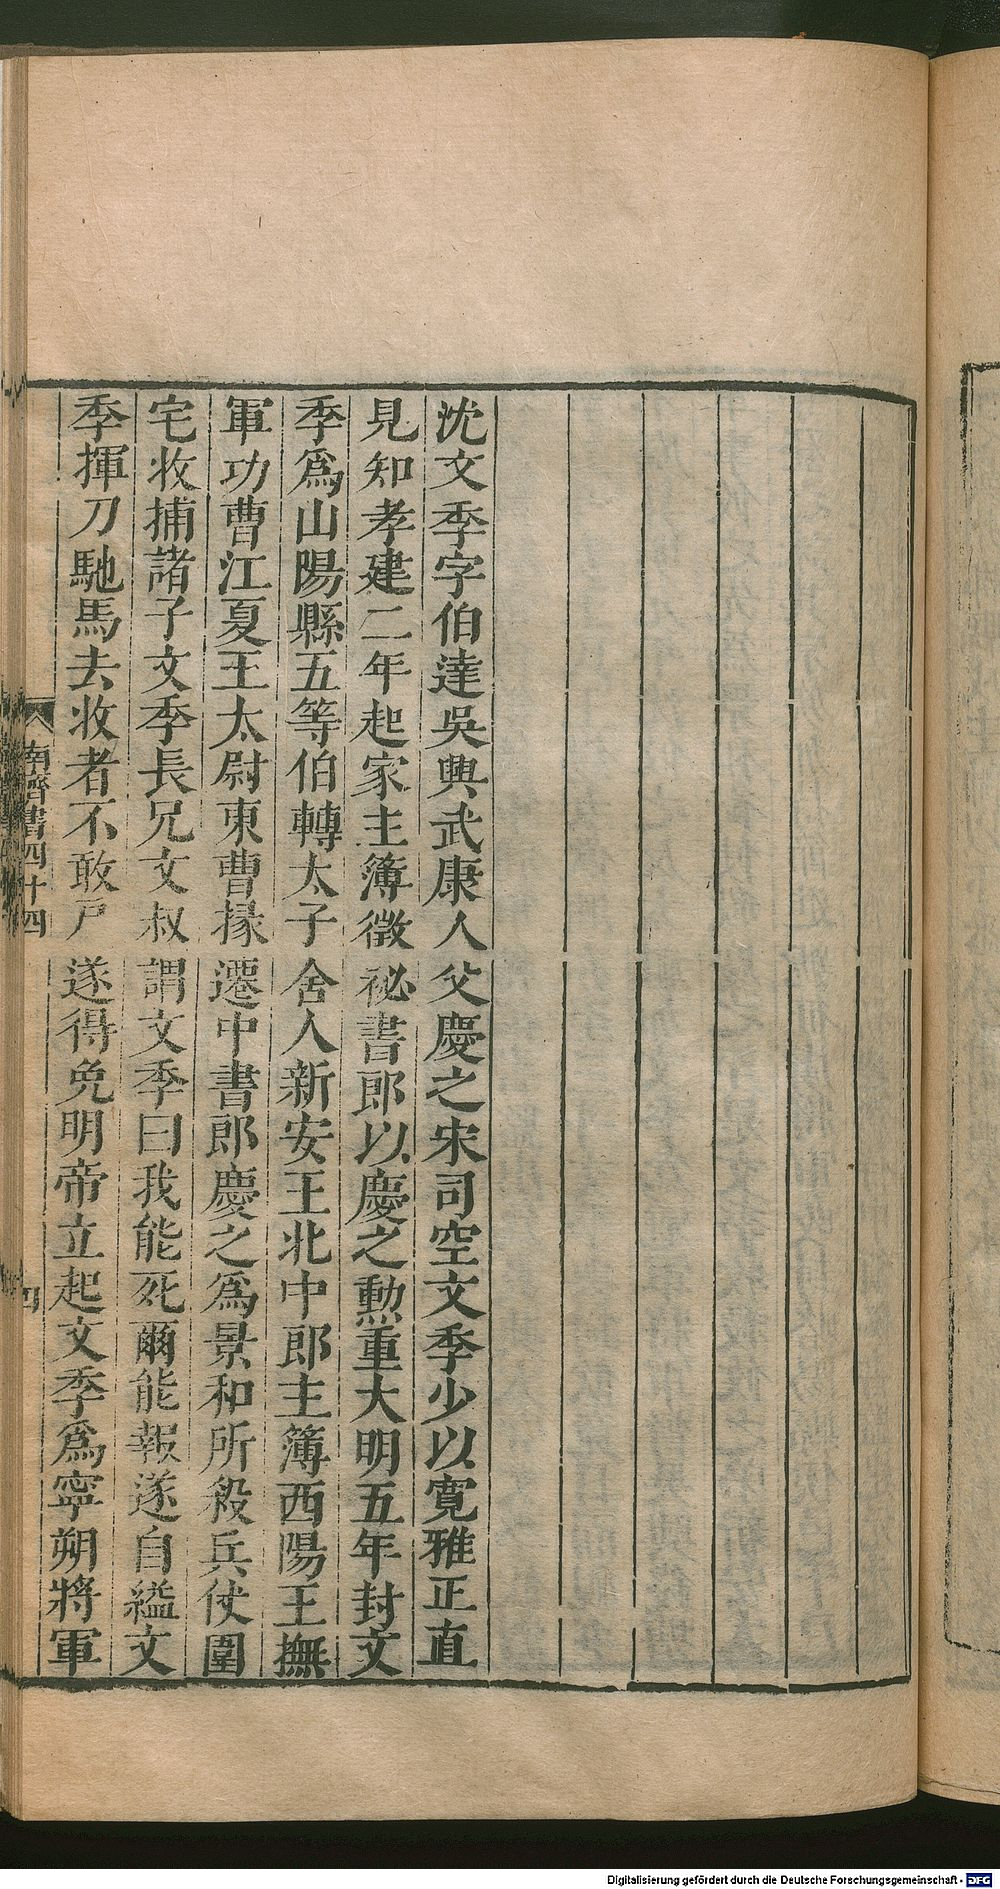 沈文季字伯達吳興武康人父慶之宋司空文季少以寛雅正直
見知孝建二年起家主簿徵祕書郎以慶之勲重大明五年封文
季爲山陽縣五等伯轉太子舍人新安王北中郎主簿西陽王撫
軍功曹江夏王太尉東曹掾遷中書郎慶之爲景和所殺兵仗圍
宅收捕諸子文季長兄文叔謂文季曰我能死爾能報遂自縊文
季揮刀馳馬去收者不敢戸遂得免明帝立起文季爲寧朔將軍
南齊書四十四
四
Digitalisierung gefördert durch die Deutsche Forschungsgemeinschaft - DFG